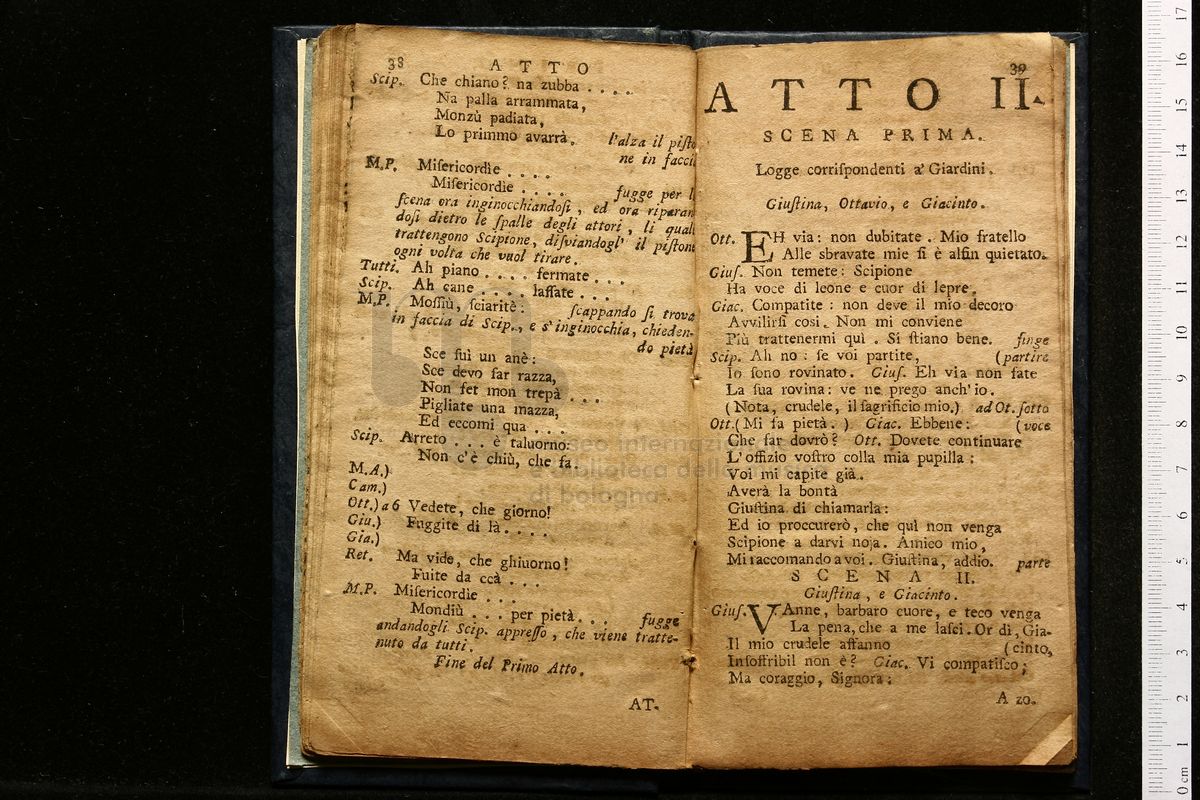 38
A T T O
Scip. Che chiano? na zubba . . . .
Na palla arrammata,
Monzù padiata,
Lo primmo avarrà. l'alza il piſto
ne in facci
M.P. Miſericordìe . . . .
Miſericordìe . . . . fugge per l
ſcena ora inginocchiandoſi, ed ora riparan
doſi dietro le ſpalle degli attori, li quali
trattengono Scipione, diſviandogl' il piſtone
ogni volta che vuol tirare.
Tutti. Ah piano . . . . fermate . . .
Scip. Ah cane . . . . laſſate . . .
M.P. Moſſiù, ſciaritè: ſcappando ſi trova
in faccia di Scip., e s'inginocchia, chieden-
do pietà
Sce ſuì un anè:
Sce devo far razza,
Non fet mon trepà . . .
Pigliate una mazza,
Ed eccomi qua . . .
Scip. Arreto . . . è taluorno:
Non c'è chiù, che fa.
M.A.)
Cam.)
Ott.) a 6 Vedete, che giorno!
Giu.) Fuggite di là . . . .
Gia.)
Ret. Ma vide, che ghiuorno!
Fuite da ccà . . .
M.P. Miſericordìe . . .
Mondiù . . . per pietà . . . fugge
andandogli Scip. appreſſo, che viene tratte-
nuto da tutti.
Fine del Primo Atto.
AT-
39
A T T O II.
SCENA PRIMA.
Logge corriſpondenti a' Giardini.
Giuſtina, Ottavio, e Giacinto.
Ott. EH via: non dubitate. Mio fratello
Alle sbravate mie ſi è alfin quietato.
Giuſ. Non temete: Scipione
Ha voce di leone e cuor di lepre.
Giac. Compatite: non deve il mio decoro
Avvilirſi così. Non mi conviene
Più trattenermi quì. Si ſtiano bene. finge
Scip. Ah no: ſe voi partite, (partire
Io ſono rovinato. Giuſ. Eh via non fate
La ſua rovina: ve ne prego anch'io.
(Nota, crudele, il ſagrificio mio.) ad Ot. ſotto
Ott. (Mi fa pietà.) Giac. Ebbene: (voce
Che far dovrò? Ott. Dovete continuare
L'offizio voſtro colla mia pupilla:
Voi mi capite già.
Averà la bontà
Giuſtina di chiamarla:
Ed io proccurerò, che quì non venga
Scipione a darvi noja. Amico mio,
Mi raccomando a voi. Giuſtina, addio. parte
S C E N A II.
Giuſtina, e Giacinto.
Giuſ. VAnne, barbaro cuore, e teco venga
La pena, che a me laſci. Or dì, Gia-
Il mio crudele affanno (cinto,
Inſoffribil non è? Giac. Vi compatiſco;
Ma coraggio, Signora:
A zo.
museo internazionale
e biblioteca della
di bologna
0 cm 1 2 3 4 5 6 7 8 9 10 11 12 13 14 15 16 17